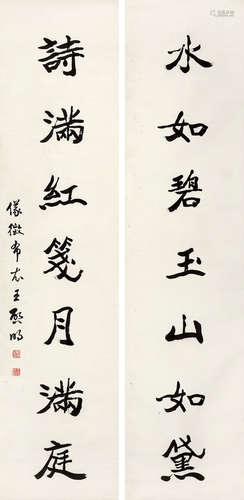 水如碧玉山如黛
詩滿紅箋月滿庭
儀徵布衣王熙明